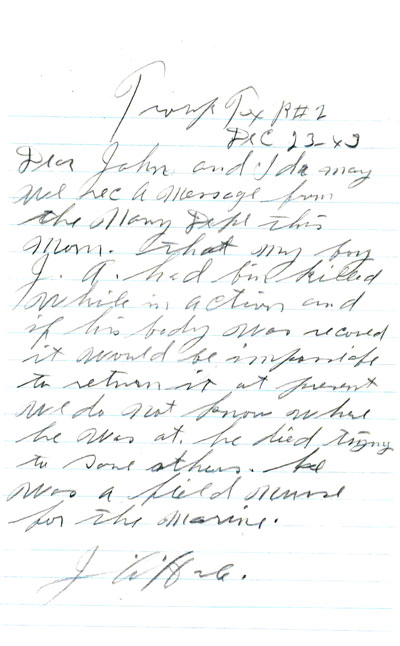 Troup Tex R#2
Dec 23-43
Dear John and Ida may
we rec a message from
the Navy Dept this
morn. that my boy
J. A. had bin killed
while in action and
if his body was recoved
it would be impossible
to return it at present
we do not know where
he was at. he died trying
to save others. he
was a field nurse
for the marine.
J